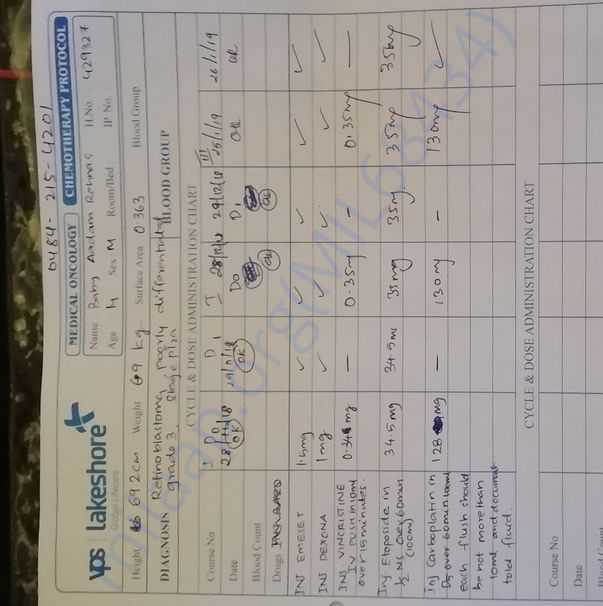 0484-215-4201
VPS lakeshore
Global Lifecare
MEDICAL ONCOLOGY CHEMOTHERAPY PROTOCOL
Name : Baby Aadam Rehnas H.No. : 429327
Age : 4 Sex : M Room/Bed: IP No :
Height 69.2cm Weight 6.9 kg. Surface Area 0.363 Blood Group
DIAGNOSIS Retinoblastoma, poorly differentiated BLOOD GROUP
grade 3, Stage
CYCLE & DOSE ADMINISTRATION CHART
Course No I III
Date 28/11/18 29/11/18 28/12/18 29/12/18 25/1/19 26/1/19
D0 D1 D0 D1
OK OK OK OK OK OK
Blood Count
Drugs
INJ EMESET 1.5mg ✓ ✓ ✓ ✓ ✓
INJ DEXONA 1mg ✓ ✓ ✓ ✓ ✓
INJ VINCRISTINE 0.34mg — 0.35mg - 0.35mg —
IV push in 10ml
over 15 minutes.
Inj Etoposide in 34.5mg 34.5mg 35mg 35mg. 35mg 35mg
½ NS over 60min
(100cc)
Inj Carboplatin in 128mg — 130mg - 130mg ✓
D5 over 60min 100ml
each flush should
be not more than
10ml and document
told fluid.
CYCLE & DOSE ADMINISTRATION CHART
Course No
Date
Blood Count
milaap.org(MIL68434)